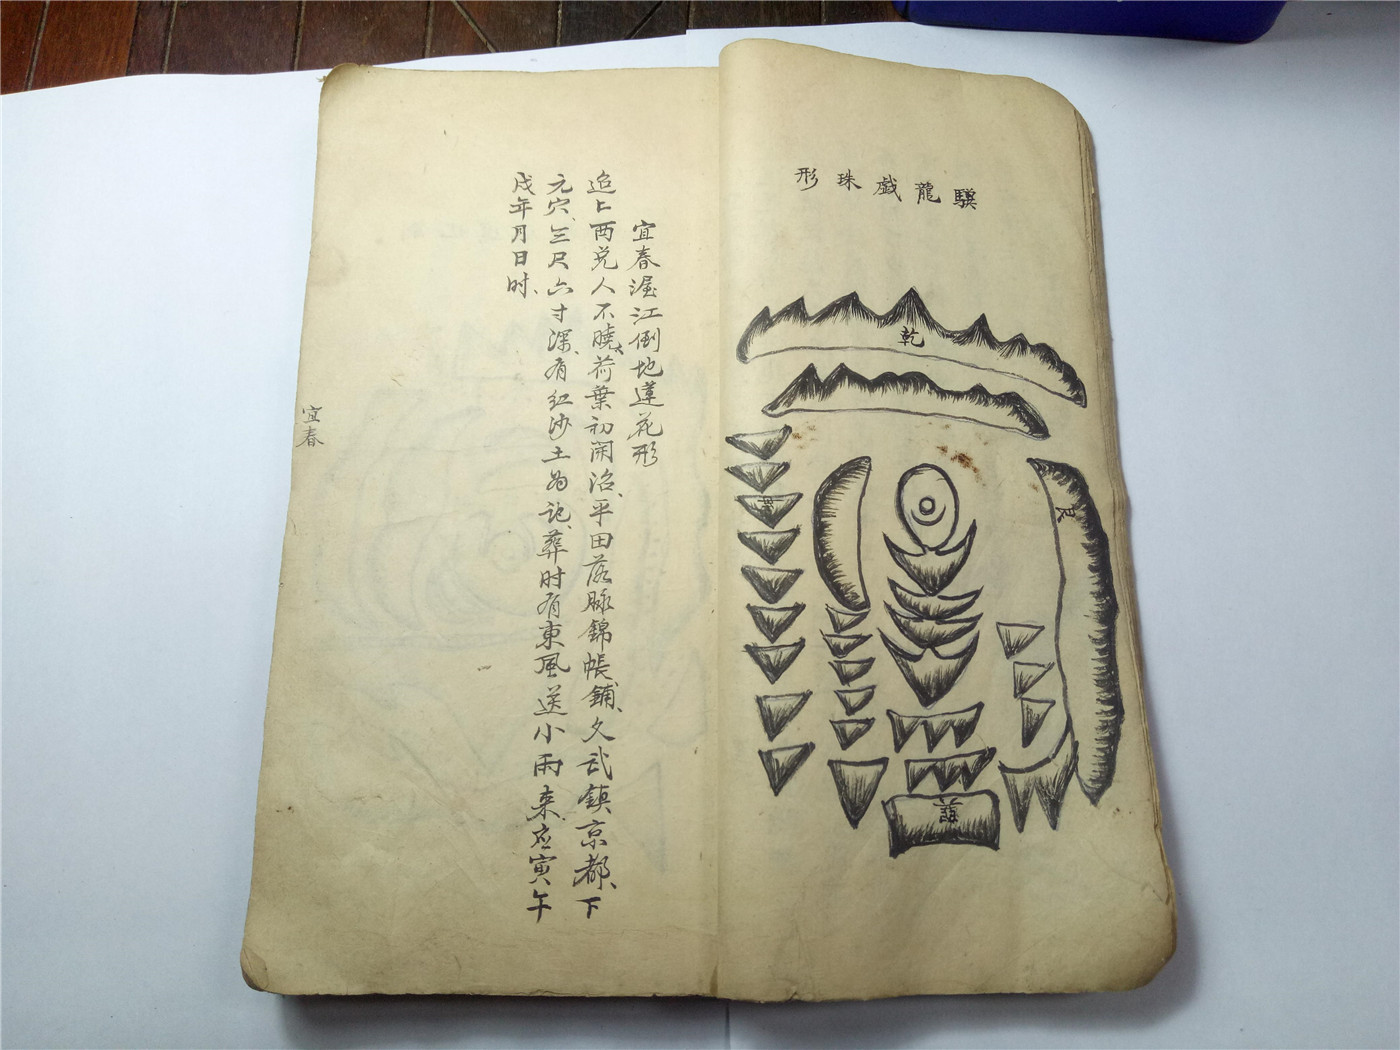 驥龍戲珠形
乾
艮
宜春渥江倒地蓮花形
追上酉兑人不曉、荷葉初開沼、平田落脉錦帳鋪、文武鎮京都、下
元穴、三尺六寸深、有紅沙土為記、葬时有東風送小雨来、应寅午
戌年月日时、
宜春